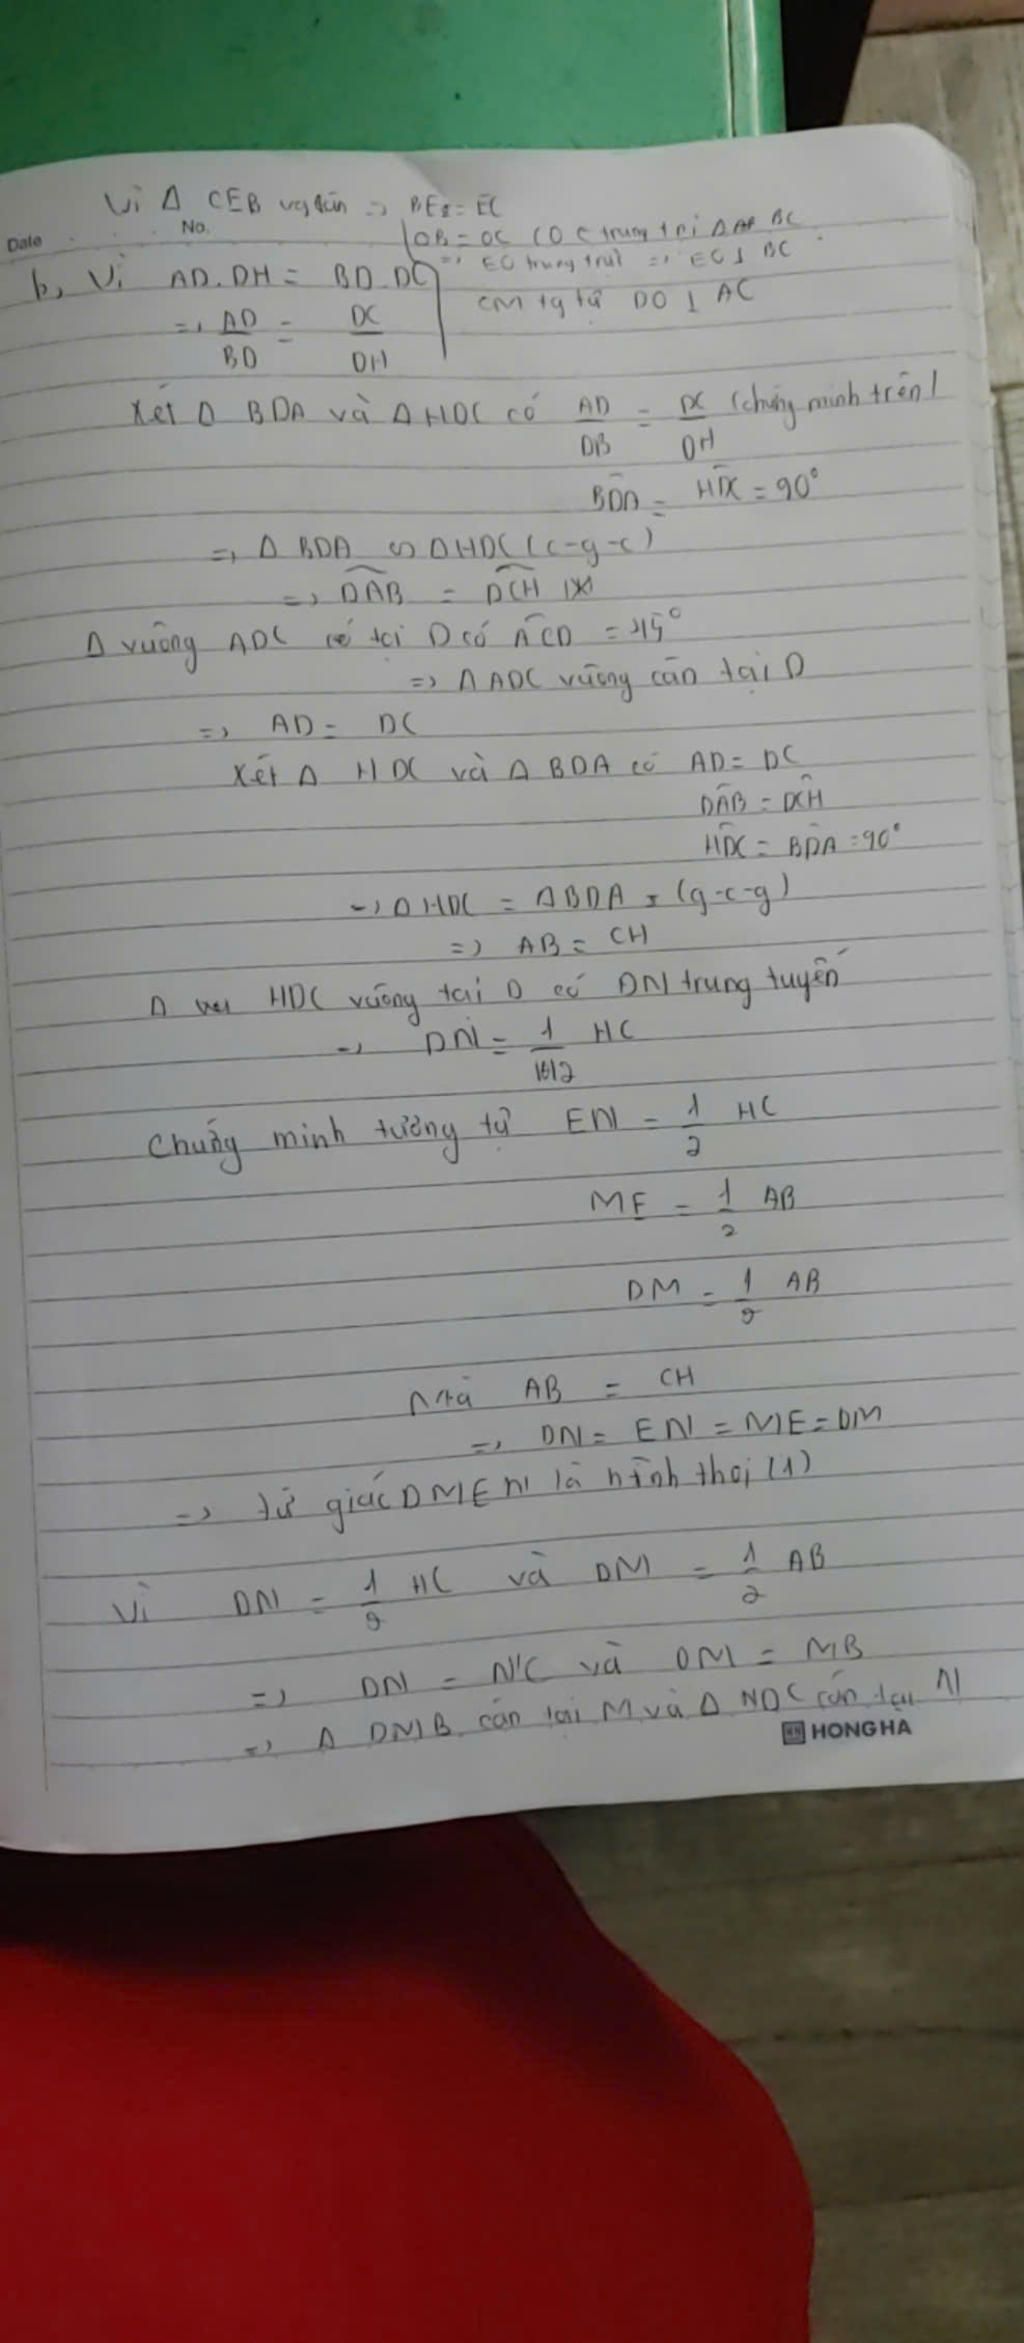 Vì Δ CEB vg cân => BE = EC
Date No.
OB = OC (O ∈ trung trực Δ BC
=> EO trung trực => EO ⊥ BC
CM tg tự DO ⊥ AC
b, Vì AD.DH = BD.DC
=> AD/BD = DC/DH
Xét Δ BDA và Δ HDC có AD/DB = DC/DH (chứng minh trên)
BDA = HDC = 90°
=> Δ BDA ∽ Δ HDC (c-g-c)
=> DAB = DCH (*)
Δ vuông ADC tại D có ACD = 45°
=> Δ ADC vuông cân tại D
=> AD = DC
Xét Δ HDC và Δ BDA có AD = DC
DAB = DCH
HDC = BDA = 90°
=> Δ HDC = Δ BDA (g-c-g)
=> AB = CH
Δ HDC vuông tại D có DN trung tuyến
=> DN = 1/2 HC
Chứng minh tương tự EN = 1/2 HC
ME = 1/2 AB
DM = 1/2 AB
Mà AB = CH
=> DN = EN = ME = DM
=> tứ giác DMEN là hình thoi (1)
Vì DN = 1/2 HC và DM = 1/2 AB
=> DN = NC và DM = MB
=> Δ DMB cân tại M và Δ NDC cân tại N
HONG HA